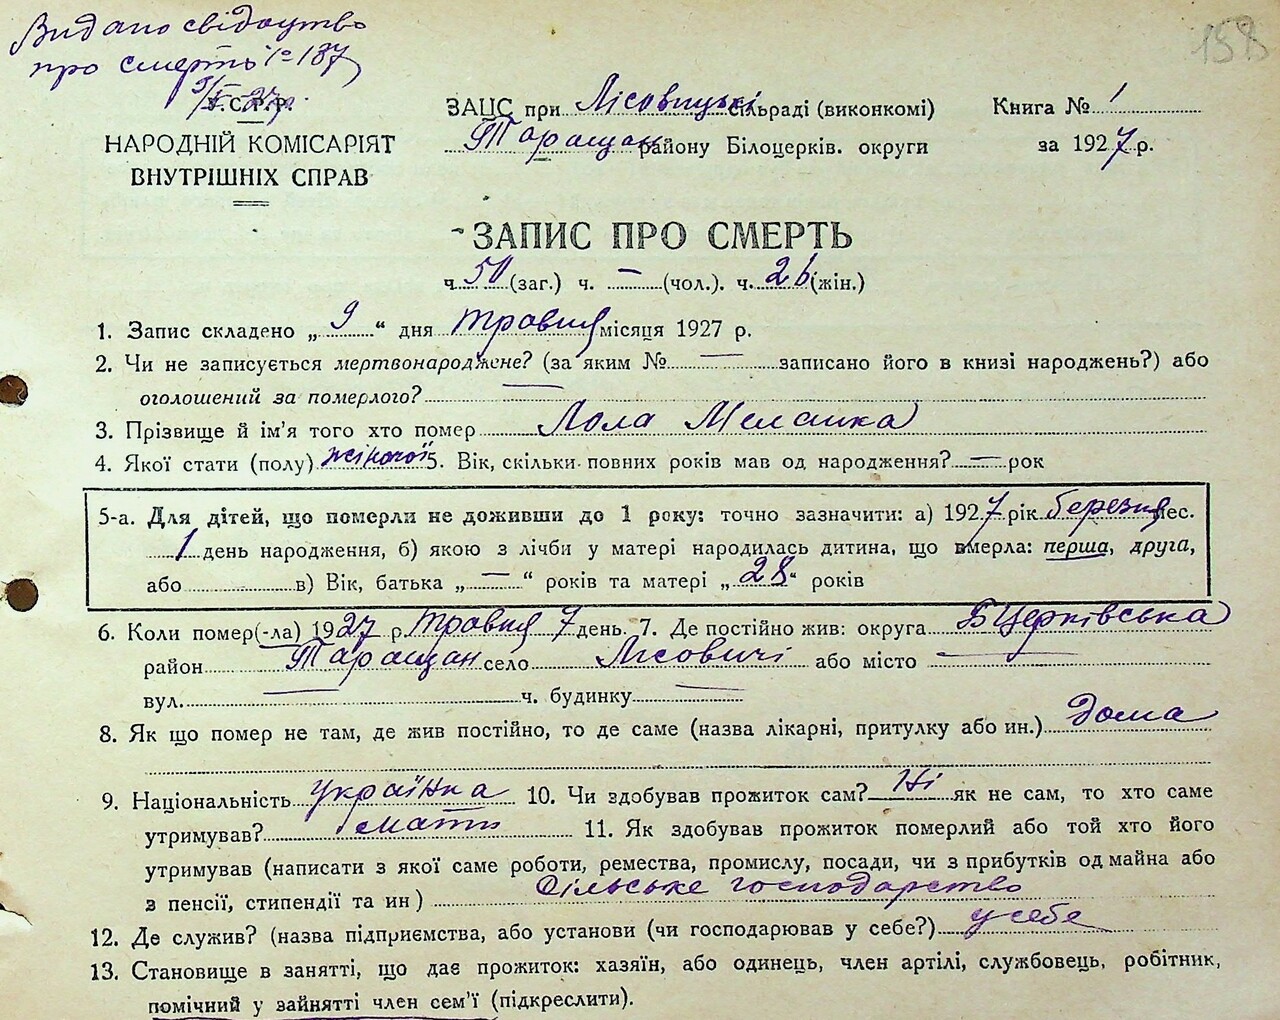 Видано свідоцтво
про смерть № 187
9/V 27р.
158
У.С.Р.Р.
НАРОДНІЙ КОМІСАРІЯТ
ВНУТРІШНІХ СПРАВ
ЗАЦС при Лісовицькі сільраді (виконкомі)
Таращан району Білоцерків. округи
Книга № 1
за 1927 р.
ЗАПИС ПРО СМЕРТЬ
ч. 50 (заг.) ч. — (чол.). ч. 26 (жін.)
1. Запис складено „ 9 “ дня травня місяця 1927 р.
2. Чи не записується мертвонароджене? (за яким № — записано його в книзі народжень?) або
оголошений за померлого? —
3. Прізвище й ім'я того хто помер Лола Меланка
4. Якої стати (полу) жіночої 5. Вік, скільки повних років мав од народження? — рок
5-а. Для дітей, що померли не доживши до 1 року: точно зазначити: а) 1927 рік березня мес.
1 день народження, б) якою з лічби у матері народилась дитина, що вмерла: перша, друга,
або в) Вік, батька „ — “ років та матері „ 28 “ років
6. Коли помер(-ла) 1927 р. травня 7 день. 7. Де постійно жив: округа БЦерківська
район Таращан село Лісовичі або місто —
вул. — ч. будинку —
8. Як що помер не там, де жив постійно, то де саме (назва лікарні, притулку або ин.) дома
9. Національність українка 10. Чи здобував прожиток сам? Ні як не сам, то хто саме
утримував? мати 11. Як здобував прожиток померлий або той хто його
утримував (написати з якої саме роботи, ремества, промислу, посади, чи з прибутків од майна або
з пенсії, стипендії та ин ) Сільське господарство
12. Де служив? (назва підприємства, або установи (чи господарював у себе?) у себе
13. Становище в занятті, що дає прожиток: хазяїн, або одинець, член артілі, службовець, робітник,
помічний у зайнятті член сем'ї (підкреслити).